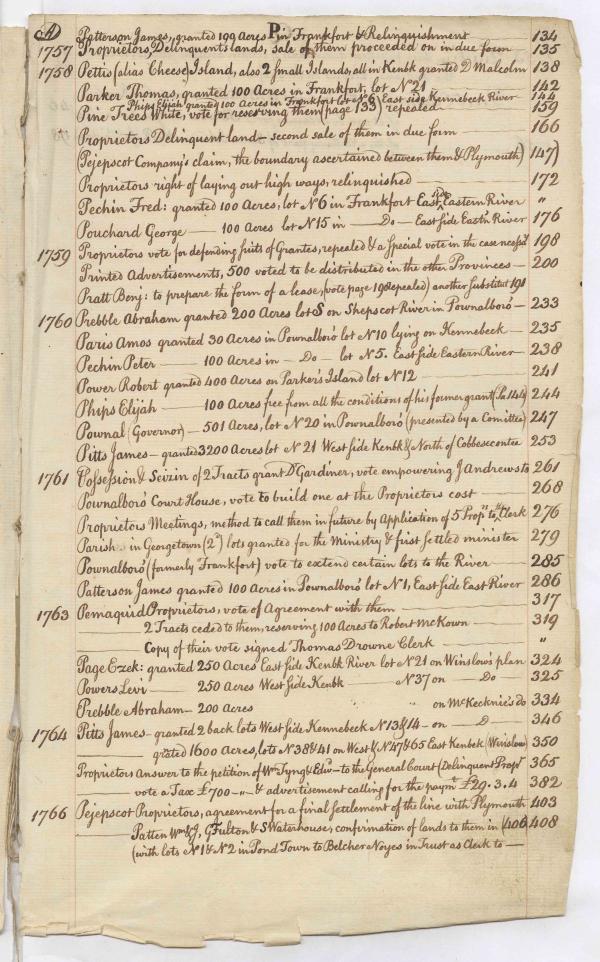 A P
Patterson James, granted 199 Acres in Frankfort & Relinquishment 134
1757 Proprietors, Delinquents lands, sale of them proceeded on in due form 135
1758 Pettis (alias Cheese) Island, also 2 small Islands, all in Kenbk granted D Malcolm 138
Parker Thomas, granted 100 Acres in Frankfort, lot N 21 142
Phips Elijah granted 100 Acres in Frankfort lot N 8 East side Kennebeck River 144
Pine Trees White, vote for reserving them (page 133) repealed 159
Proprietors Delinquent land — second sale of them in due form 166
(Pejepscot Company's claim, the boundary ascertained between them & Plymouth) 147)
Proprietors right of laying out high ways, relinquished 172
Pechin Fred: granted 100 Acres, lot N 6 in Frankfort East side Eastern River "
Pouchard George — 100 Acres lot N 15 in — Do — East side Eastn River 176
1759 Proprietors vote for defending suits of Grantes, repealed & a special vote in the case necessy 198
Printed Advertisements, 500 voted to be distributed in the other Provinces — 200
Pratt Benj: to prepare the form of a lease, (vote page 198 repealed) another substitut 191
1760 Prebble Abraham granted 200 Acres lot S on Shepscot River in Pownalboro' — 233
Paris Amos granted 30 Acres in Pownalboro' lot N 10 lying on Kennebeck — 235
Pechin Peter — 100 Acres in — Do — lot N 5. East side Eastern River — 238
Power Robert granted 400 Acres on Parker's Island lot N 12 241
Phips Elijah — 100 Acres free from all the conditions of his former grant (Pa 144) 244
Pownal (Governor) — 501 Acres, lot N 20 in Pownalboro' (presented by a Comittee) 247
Pitts James — granted 3200 Acres lot N 21 West side Kenbk & North of Cobbesecontee 253
1761 Possession & Seizin of 2 Tracts grant Dr Gardiner, vote empowering J Andrews to 261
Pownalboro' Court House, vote to build one at the Proprietors cost 268
Proprietors Meetings, method to call them in future by Application of 5 Prop.rs to ye Clerk 276
Parish in Georgetown (2d) lots granted for the Ministry & first settled minister 279
Pownalboro' (formerly Frankfort) vote to extend certain lots to the River — 285
Patterson James granted 100 Acres in Pownalboro' lot N 1, East side East River 286
1763 Pemaquid Proprietors, vote of Agreement with them — 317
2 Tracts ceded to them, reserving 100 Acres to Robert McKown — 319
Copy of their vote signed Thomas Drowne Clerk — "
Page Ezek: granted 250 Acres East side Kenbk River lot N 21 on Winslow's plan 324
Powers Levi — 250 Acres West side Kenbk — N 37 on — Do — 325
Prebble Abraham — 200 Acres on McKecknie's do 334
1764 Pitts James — granted 2 back lots West side Kennebeck N 13 & 14 — on — D — 346
— grated 1600 Acres, lots N 38 & 41 on West & N 47 & 65 East Kenbek (Winslow) 350
Proprietors Answer to the petition of Wm Tyng & Edw — to the General Court (Delinquent Propr 365
— vote a Tax £700 - " - & advertisement calling for the paymt £29.3.4 382
1766 Pejepscot Proprietors, agreement for a final settlement of the line with Plymouth 403
Patten Wm & J, G Fulton & S Waterhouse, confirmation of lands to them in (406) 408
(with lots N 1 & N 2 in Pond Town to Belcher Noyes in Trust as Clerk to —